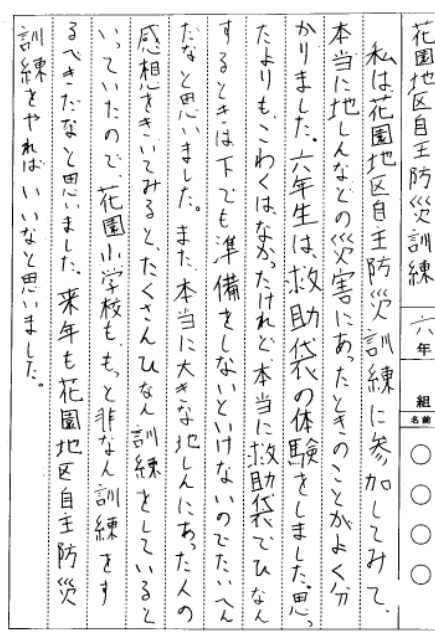 花園地区自主防災訓練
六年
組
名前
○○○○
私は花園地区自主防災訓練に参加してみて、
本当に地しんなどの災害にあったときのことがよく分
かりました。六年生は、救助袋の体験をしました。思っ
たよりも、こわくは、なかったけれど、本当に救助袋でひなん
するときは下でも準備をしないといけないのでたいへん
だなと思いました。また、本当に大きな地しんにあった人の
感想をきいてみると、たくさんひなん訓練をしていると
いっていたので、花園小学校も、もっと非なん訓練をす
るべきだなと思いました。来年も花園地区自主防災
訓練をやればいいなと思いました。